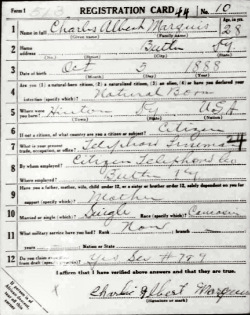 Form 1 REGISTRATION CARD 44 No. 10
1 Name in full Charles Albert Marquis Age, in yrs. 28
(Given name) (Family name)
2 Home address Butler Ky
(No.) (Street) (City) (State)
3 Date of birth Oct 5 1888
(Month) (Day) (Year)
4 Are you (1) a natural-born citizen, (2) a naturalized citizen, (3) an alien, (4) or have you declared your
intention (specify which)? Natural Born
5 Where were you born? Hinton Ky USA
(Town) (State) (Nation)
6 If not a citizen, of what country are you a citizen or subject? Citizen
7 What is your present trade, occupation, or office? Telephone Lineman
8 By whom employed? Citizen Telephone Co
Where employed? Butler Ky
9 Have you a father, mother, wife, child under 12, or a sister or brother under 12, solely dependent on you for
support (specify which)? Mother
10 Married or single (which)? Single Race (specify which)? Caucasian
11 What military service have you had? Rank None branch
years Nation or State
12 Do you claim exemption from draft (specify grounds)? Yes See # 9
I affirm that I have verified above answers and that they are true.
Charles Albert Marquis
(Signature or mark)